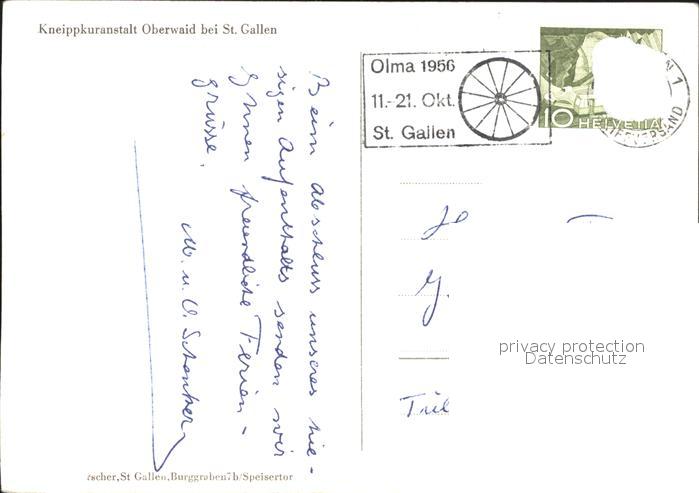 Kneippkuranstalt Oberwaid bei St. Gallen
Olma 1956
11.-21. Okt.
St. Gallen
10 HELVETIA
N 1
BRIEFVERSAND
Beim Abschluss unseres hie-
sigen Aufenthalts senden wir
Ihnen freundliche Ferien-
grüsse.
M. u. O. Schenker
privacy protection
Datenschutz
scher, St Gallen, Burggraben 7b/Speisertor